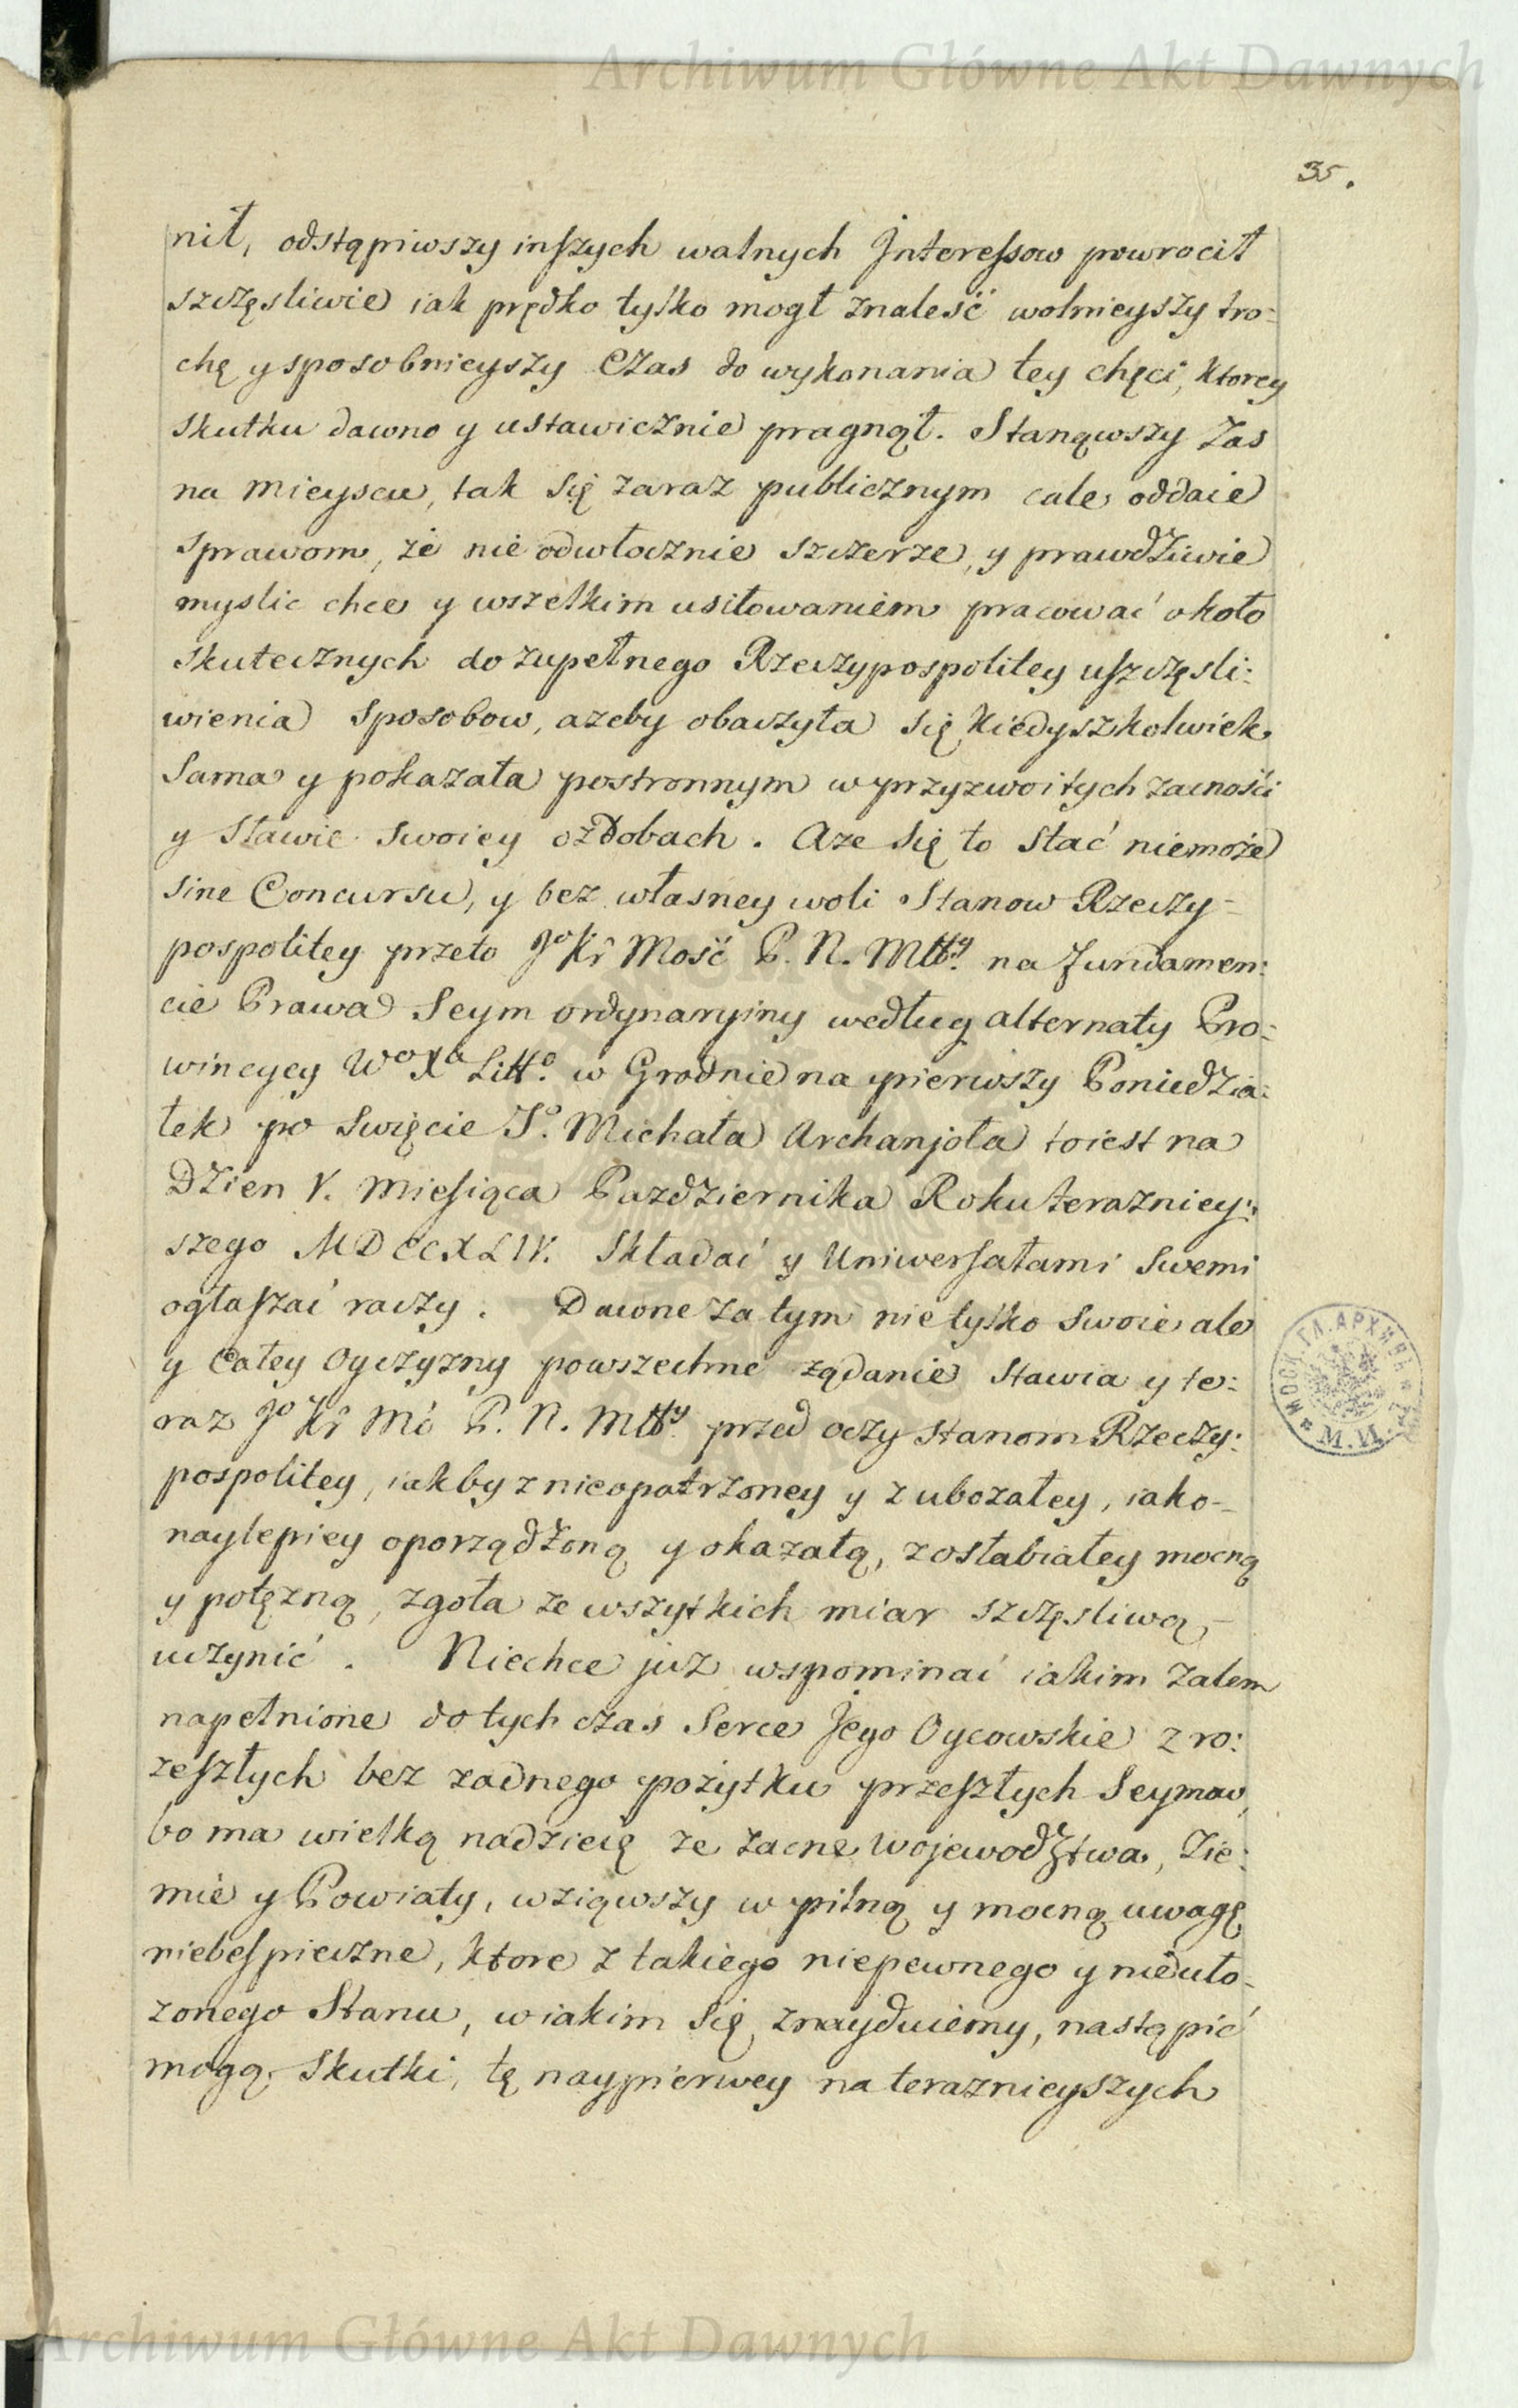 Archiwum Główne Akt Dawnych
35.
nił, odstąpiwszy inszych walnych Interessow powrocił
szczęsliwie iak prędko tylko mogł znaleść wolnieyszy tro=
chę y sposobnieyszy Czas do wykonania tey chęci, ktorey
skutku dawno y ustawicznie pragnął. Stanąwszy zas
na mieyscu, tak się zaraz publicznym cale oddaie
sprawom, że nie odwłocznie szczerze, y prawdziwie
myslic chce y wszelkim usiłowaniem pracować około
skutecznych do zupełnego Rzeczypospolitey uszczęsli:
wienia sposobow, azeby obaczyła się kiedyszkolwiek
sama y pokazała postronnym w przyzwoitych zacnośći
y Sławie swoiey ozdobach. Aze się to stać niemoże
sine Concursu, y bez własney woli Stanow Rzeczy=
pospolitey przeto Jo Kr Mość P. N. Mttłły. na fundamen:
cie Prawa Seym ordynaryiny według alternaty Pro:
wincyey Wo Xa Litto. w Grodnie na pierwszy Poniedzia:
łek po Swięcie So. Michała Archanjoła toiest na
Dzien V. Miesiąca Pazdziernika Roku terazniey:
szego MDCCXLIV. Składać y Uniwersałami Swemi
ogłaszać raczy. Dawne zatym nie tylko swoie ale
y Całey Oyczyzny powszechne żądanie stawia y te:
raz Jo Kr Mć P. N. Mttłły. przed oczy stanom Rzeczy:
pospolitey, iakby z nieopatrzoney y zubozałey, iako-
naylepiey oporządzoną y okazałą, z osłabiałey mocną
y potęzną, zgoła ze wszytkich miar szczęsliwą,-
uczynić. Niechce juz wspominać iakim zalem
napełnione dotych czas Serce Jego Oycowskie z ro:
zeszłych bez zadnego pożytku przeszłych Seymow,
bo ma wielką nadzieię ze zacne Wojewodztwa, Zie:
mie y Powiaty, wziąwszy w pilną y mocną uwagę
niebespieczne, ktore z takiego niepewnego y nieuło-
zonego Stanu, w iakim się znayduiemy, nastąpić
mogą. Skutki, tę naypierwey na teraznieyszych
МОСК. ГЛ. АРХИВЪ
М.И.
Archiwum Główne Akt Dawnych